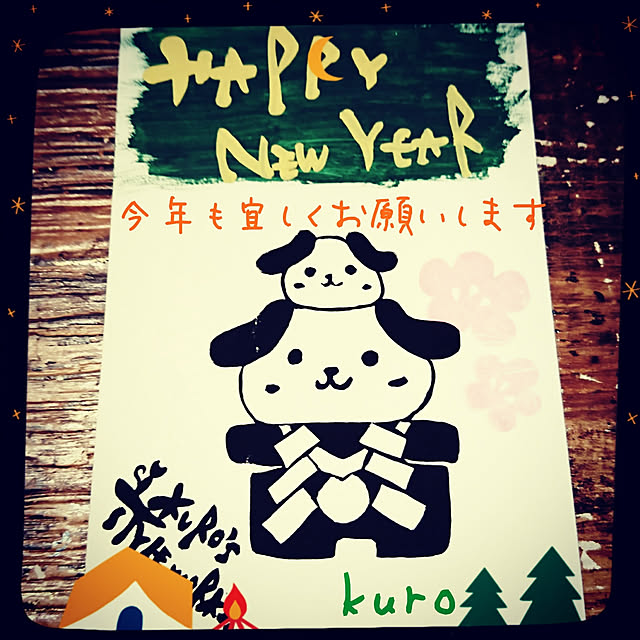 HAPPY
NEW YEAR
今年も宜しくお願いします
KURO'S
kuro